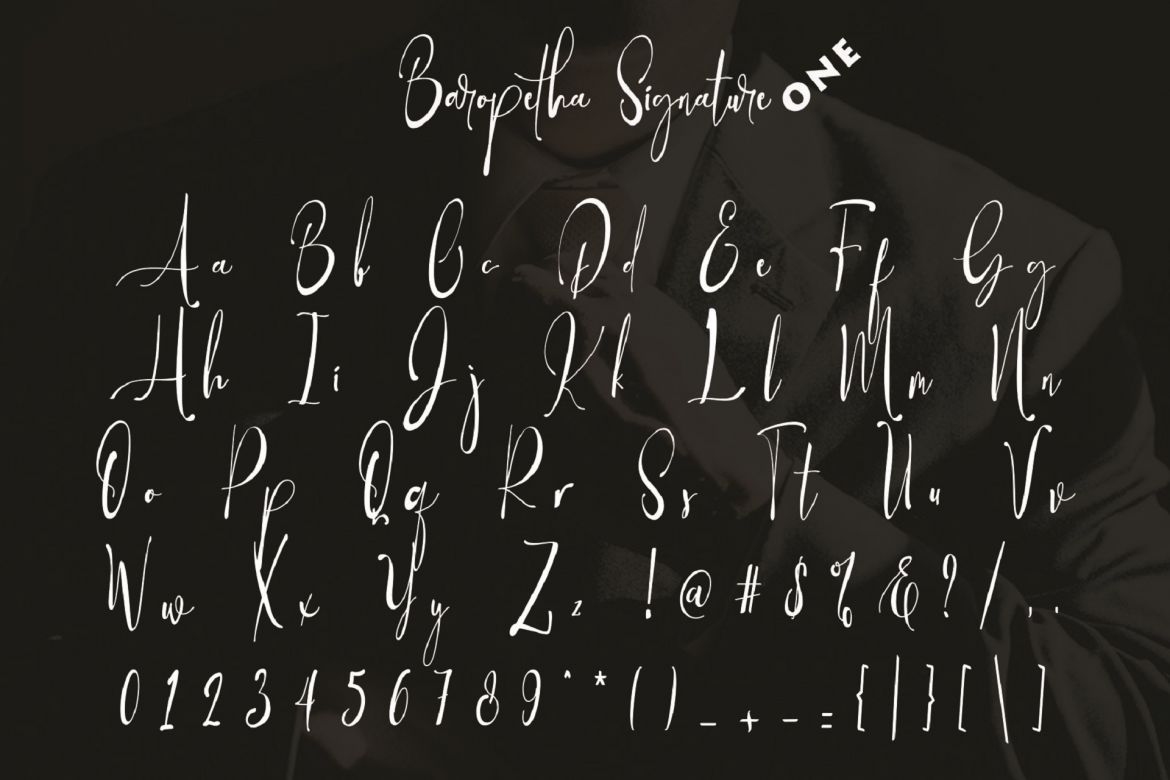 Baropetha Signature ONE
Aa Bb Cc Dd Ee Ff Gg
Hh Ii Jj Kk Ll Mm Nn
Oo Pp Qq Rr Ss Tt Uu Vv
Ww Xx Yy Zz ! @ # $ % & ? / , .
0 1 2 3 4 5 6 7 8 9 ^ * ( ) _ + - = { | } [ \ ]